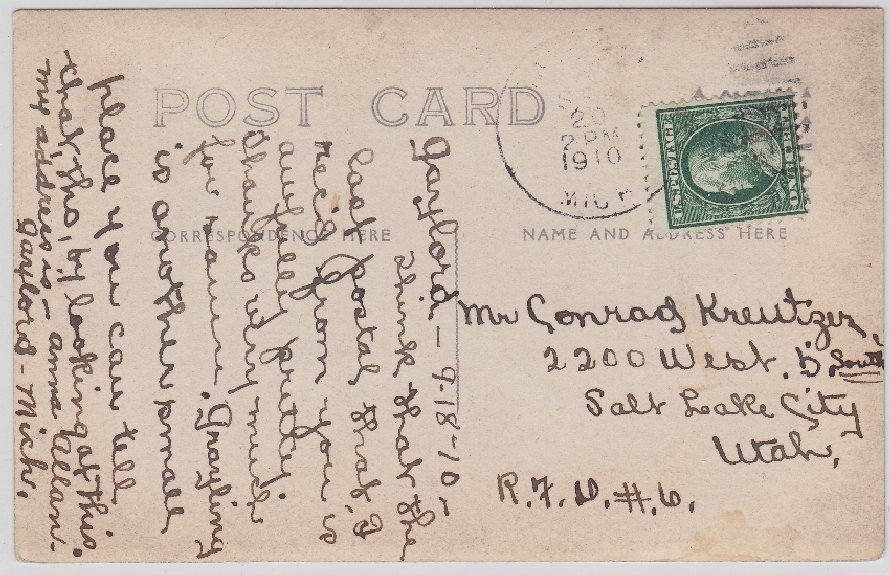 POST CARD
CORRESPONDENCE HERE
NAME AND ADDRESS HERE
20
2 PM
1910
MICH
U.S. POSTAGE
ONE
Gaylord - 9-18-10-
think that the
last postal that I
rec'd from you is
awfully pretty.
Thanks very much
for same. Grayling
is another small
place you can tell
that, tho, by looking at this.
my address is - anna Allan.
Gaylord - Mich.
Mr Conrad Kreutzer
2200 West. 5 South
Salt Lake City
Utah,
R.F.D. #.6.